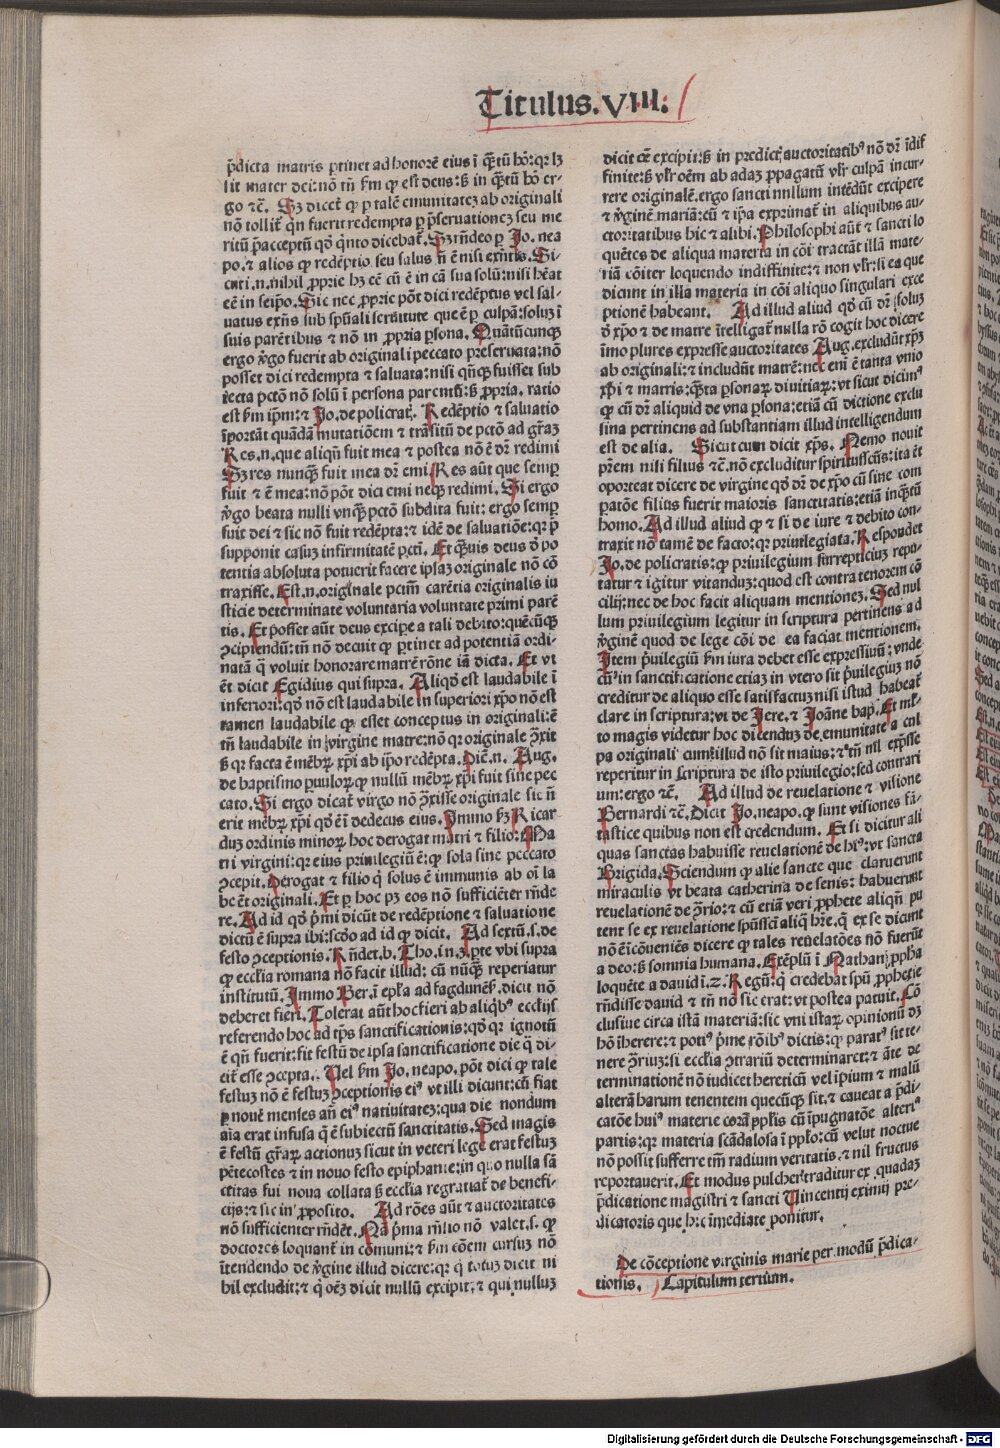 Titulus.VIII.
p̄dicta matris ꝑtinet ad honorē eius ī q̄ꝫtū hō: qꝛ lꝫ
sit mater dei: nō tn̄ ẜm ꝙ est deus: ẜ in q̄ꝫtū hō er-
go ⁊c̄. Sꝫ diceť ꝙ ꝑ talē emunitatez ab originali
nō tolliť qn̄ fuerit redempta ꝑ p̄seruationez seu me
ritū p̄acceptū qd̄ q̇nto dicebať. Sꝫ rn̄deo ꝑ Jo. nea
po. ⁊ alios ꝙ redēptio seu salus n̄ ē nisi exn̄tis. Si-
cuti .n. nihil ꝓprie hꝫ eē cū ē in cā sua solū: nisi hēat
eē in seip̄o. Sic nec ꝓprie pōt dici redēptus vel sal-
uatus exn̄s sub sp̄uali seruitute que ē ꝑ culpā: solū ī
suis parētibus ⁊ nō in ꝓpria ꝑsona. Quātūcunqꝫ
ergo v̄go fuerit ab originali peccato preseruata: nō
posset dici redempta ⁊ saluata: nisi qn̄qꝫ fuisset sub
iecta pctō nō solū ī persona parentū: ẜ ꝓpria. ratio
est ẜm ip̄m: ⁊ Jo. de policrať. Redēptio ⁊ saluatio
īportāt quādā mutatiōem ⁊ trāsitū de pctō ad gr̄az
Res .n. que aliqn̄ fuit mea ⁊ postea nō ē dr̄ redimi
Sꝫ res nunqꝫ fuit mea dr̄ emi. Res aūt que semꝑ
fuit ⁊ ē mea: nō pōt dici emi neqꝫ redimi. Si ergo
v̄go beata nulli vnqꝫ pctō subdita fuit: ergo semꝑ
fuit dei ⁊ sic nō fuit redēpta: ⁊ idē de saluatiōe: qꝛ p̄
supponit casuz infirmitatē pcti. Et q̄ꝫuis deus d̄ po
tentia absoluta potuerit facere ipsaz originale nō cō
traxisse. Est .n. originale pctm̄ carētia originalis iu
sticie determinate voluntaria voluntate primi parē
tis. Et posset aūt deus excipe a tali debito: quēcūqꝫ
ꝯcipiendū: tn̄ nō decuit ꝙ ꝑtinet ad potentiā ordi-
natā q̄ voluit honorare matrē rōne iā dicta. Et vt
ēt dicit Egidius qui supra. Aliqd̄ est laudabile ī
inferiori: qd̄ nō est laudabile in superiori xp̄o nō est
tamen laudabile ꝙ esset conceptus in originali: ē
tn̄ laudabile in virgine matre: nō qꝛ originale ꝯ̄xit
ẜ qꝛ facta ē mēbrꝫ xp̄i ab ip̄o redēpta. Dic̄ .n. Aug.
de baptismo puuloꝝ ꝙ nullū mēbrꝫ xp̄i fuit sine pec
cato. Si ergo dicať virgo nō ꝯ̄xisse originale sic n̄
erit mēbrꝫ xp̄i qd̄ ē ī dedecus eius. Immo ẜꝫ Ricar
duz ordinis minoꝝ hoc derogat matri ⁊ filio: Ma
tri virgini: qꝛ eius priuilegiū ē: ꝙ sola sine peccato
ꝯcepit. Derogat ⁊ filio q̇ solus ē immunis ab oī la
be ēt originali. Et ꝑ hoc pꝫ eos nō sufficiēter rn̄de
re. Ad id qd̄ p̄mi dicūt de redēptione ⁊ saluatione
dictū ē supra ibi: scd̄o ad id ꝙ dicit. Ad sextū .s. de
festo ꝯceptionis. Rn̄det .b. Tho. in .3. ꝑte vbi supra
ꝙ eccl̄ia romana nō facit illud: cū nūqꝫ reperiatur
institutū. Immo Ber. ī epl̄a ad lugdunēs. dicit nō
deberet fieri. Tolerat aūt hoc fieri ab aliqb⁹ eccl̄ijs
referendo hoc ad tp̄s sanctificationis: qd̄ qꝛ ignotū
ē qn̄ fuerit: fit festū de ipsa sanctificatione die q̄ di-
ciť esse ꝯcepta. Uel ẜm Jo. neapo. pōt dici ꝙ tale
festuz nō ē festuz ꝯceptionis ei⁹ vt illi dicunt: cū fiat
ꝑ nouē menses añ ei⁹ natiuitatez: qua die nondum
aīa erat infusa q̄ ē subiectū sanctitatis. Sed magis
ē festū gr̄aꝝ actionuz sicut in veteri lege erat festuz
pētecostes ⁊ in nouo festo epiphanie: in quo nulla sā
ctitas fui noua collata ẜ eccl̄ia regratiať de benefi-
cijs: ⁊ sic in ꝓposito. Ad rōes aūt ⁊ auctoritates
nō sufficienter rn̄dēt. Nā p̄ma rn̄sio nō valet .s. ꝙ
doctores loquant̄ in comuni: ⁊ ẜm cōem cursuz nō
ītendendo de v̄gine illud dicere: qꝛ q̇ totuz dicit ni
hil excludit: ⁊ q̇ oēꝫ dicit nullū excipit. ⁊ qui nulluz
dicit oēꝫ excipit: ẜ in predictꝭ auctoritatib⁹ nō dr̄ īdif
finite: ẜ vl̄r oēm ab adaz ꝓpagatū vl̄r culpā incur-
rere originalē. ergo sancti nnllum intēdūt excipere
⁊ v̄ginē mariā: cū ⁊ ip̄a exprimat̄ in aliquibus au-
ctoritatibus hic ⁊ alibi. Philosophi aūt ⁊ sancti lo
quētes de aliqua materia in cōi tractāt illā mate-
riā cōiter loquendo indiffinite: ⁊ non vl̄r: si ea que
dicunt in illa materia in cōi aliquo singulari exce
ptionē habeant. Ad illud aliud qd̄ cū dr̄: soluz
d̄ xp̄o ⁊ de matre ītelligať nulla rō cogit hoc dicere
īmo plures expresse auctoritates Aug. excludūt xp̄ꝫ
ab originali: ⁊ includūt matrē: nec eni ē tanta vnio
xp̄i ⁊ matris: q̄ꝫta ꝑsonaꝝ diuinaꝝ: vt sicut dicim⁹
ꝙ cū dr̄ aliquid de vna ꝑsona: etiā cū dictione exclu
siua pertinens ad substantiam illud intelligendum
est de alia. Sicut cum dicit xp̄s. Nemo nouit
pr̄em nisi filius ⁊c̄. nō excludiť spiritusscūs: ita ēt
oporteat dicere de virgine qd̄ dr̄ de xp̄o cū sine com
paratōe filius fuerit maioris sanctitatis: etiā inqꝫtū
homo. Ad illud aliud ꝙ ⁊ si de iure ⁊ debito con-
traxit nō tamē de facto: qꝛ priuilegiata. Respondet
Jo. de policratis: ꝙ priuilegium surrepticiuz repu
tatur ⁊ igitur vitanduz: quod est contra tenorem cō
cilij: nec de hoc facit aliquam mentionez. Sed nul
lum priuilegium legitur in scriptura pertinens ad
v̄ginē quod de lege cōi de ea faciat mentionem.
Item p̄uilegiū ẜm iura debet esse expressiuū: vnde
cū in sanctificatione etiaz in vtero sit p̄uilegiuz nō
creditur de aliquo esse satisfactuz nisi istud habeať
clare in scriptura: vt de Jere. ⁊ Joāne bap. Et ml̄-
to magis videtur hoc dicenduz de emunitate a cul
pa originali cum illud nō sit maius: ⁊ tn̄ nil exp̄sse
reperitur in scriptura de isto priuilegio: sed contrari
um: ergo ⁊c̄. Ad illud de reuelatione ⁊ visione
Bernardi ⁊c̄. Dicit Jo. neapo. ꝙ sunt visiones fā-
tastice quibus non est credendum. Et si dicitur ali
quas sanctas habuisse reuelationē de his: vt sancta
Brigida. Sciendum ꝙ alie sancte que claruerunt
miraculis vt beata catherina de senis: habuerunt
reuelationē de ꝯ̄rio: ⁊ cū etiā veri ꝓphete aliqn̄ pu
tent se ex reuelatione sp̄ūssci aliq̇ hr̄e. q̄ ex se dicunt
nō ē īcōueniēs dicere ꝙ tales reuelatōes nō fuerūt
a deo: ẜ somnia humana. Exēplū ī Nathan ꝓpha
loquēte a dauid ī .2. Regū. q̇ credebat spū ꝓphetie
rn̄disse dauid ⁊ tn̄ nō sic erat: vt postea patuit. Cō
clusiue circa istā materiā: sic vni istaꝝ opinionū dꝫ
hō īherere: ⁊ poti⁹ p̄me rōib⁹ dictis: ꝙ parat⁹ sit te-
nere ꝯ̄riuz: si eccl̄ia ꝯtrariū determinaret: ⁊ āte de
terminationē nō iudicet hereticū vel īpium ⁊ malū
alterā harum tenentem quecūqꝫ sit. ⁊ caueat a p̄di-
catōe hui⁹ materie corā ppl̄is cū īpugnatōe alteri⁹
partis: qꝛ materia scādalosa ī ppl̄o: cū velut noctue
nō possit sufferre tm̄ radium veritatis. ⁊ nil fructus
reportauerit. Et modus pulcher traditur ex quadaz
p̄dicatione magistri ⁊ sancti Uincentij eximij pre-
dicatoris que hic īmediate ponitur.
De cōceptione virginis marie per modū p̄dica-
tionis. Capitulum tertium.
Digitalisierung gefördert durch die Deutsche Forschungsgemeinschaft - DFG